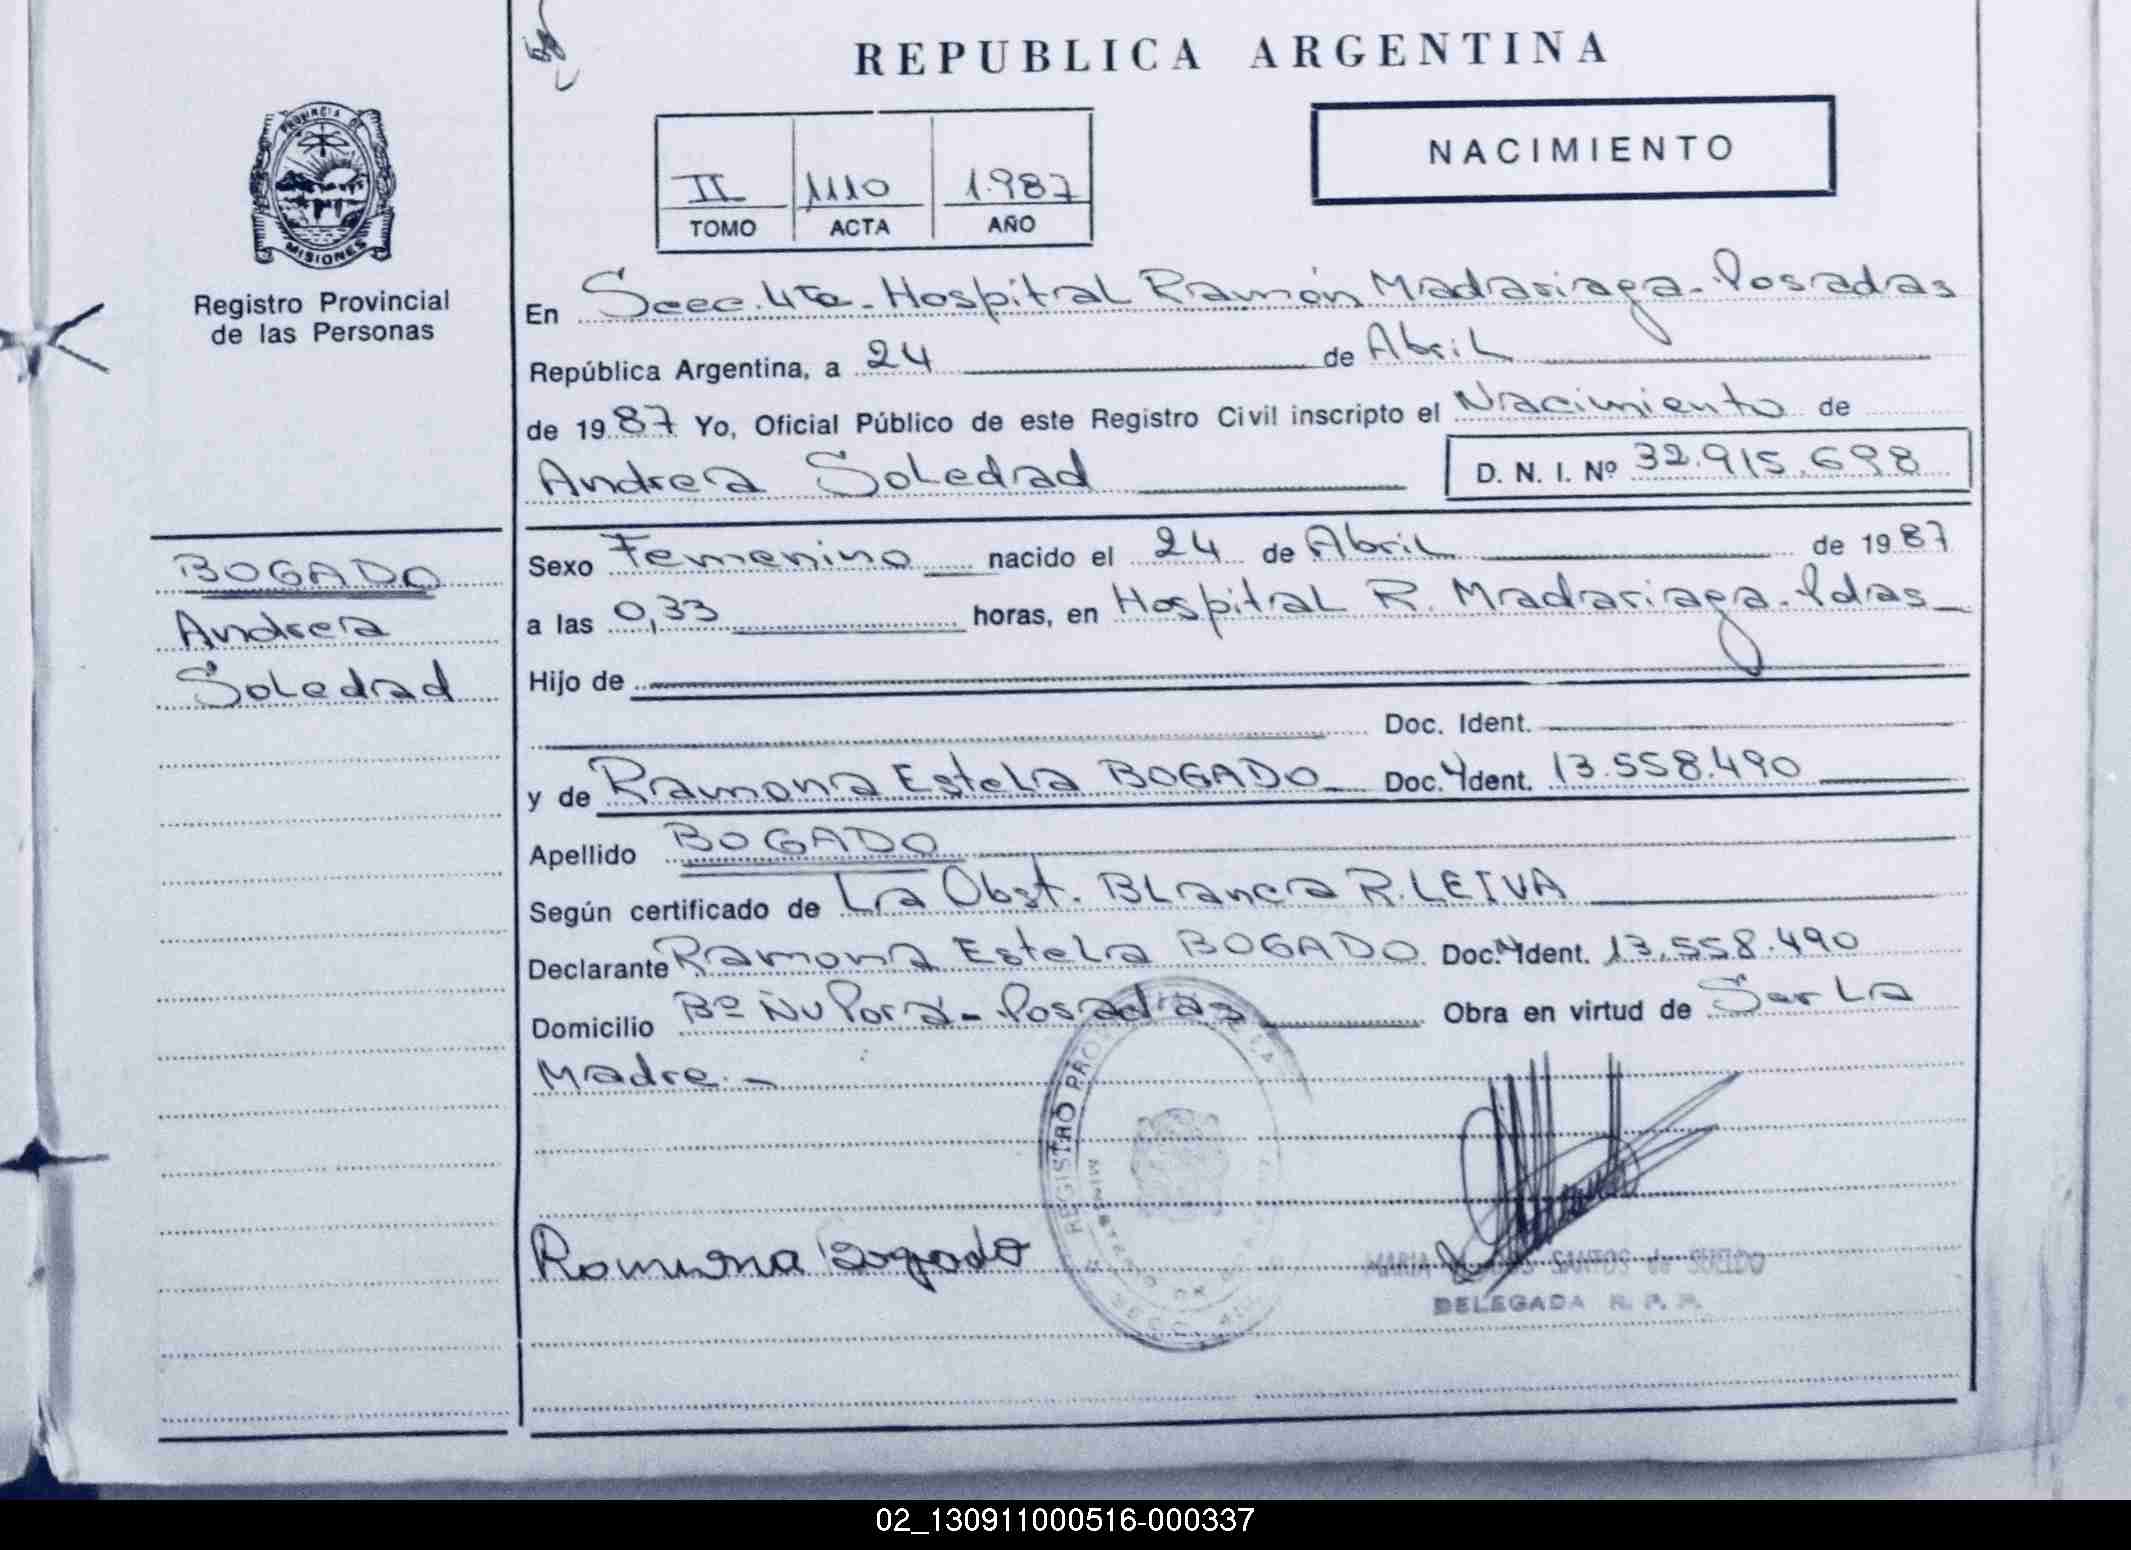 REPUBLICA ARGENTINA
NACIMIENTO
II 1110 1.987
TOMO ACTA AÑO
PROVINCIA DE
MISIONES
Registro Provincial
de las Personas
BOGADO
Andrea
Soledad
En Secc. 4ta - Hospital Ramón Madariaga - Posadas
República Argentina, a 24 de Abril
de 1987 Yo, Oficial Público de este Registro Civil inscripto el Nacimiento de
Andrea Soledad D. N. I. Nº 32.915.698
Sexo Femenino nacido el 24 de Abril de 1987
a las 0,33 horas, en Hospital R. Madariaga - Pdas
Hijo de
Doc. Ident.
y de Ramona Estela BOGADO Doc. Ident. 13.558.490
Apellido BOGADO
Según certificado de La Obst. Blanca R. LEIVA
Declarante Ramona Estela BOGADO Doc. Ident. 13.558.490
Domicilio Bº Ñu Porá - Posadas Obra en virtud de Ser La
Madre.-
REGISTRO
Ramona Bogado
MARIA SANTOS de SUELDO
DELEGADA R. P. P.
02_130911000516-000337